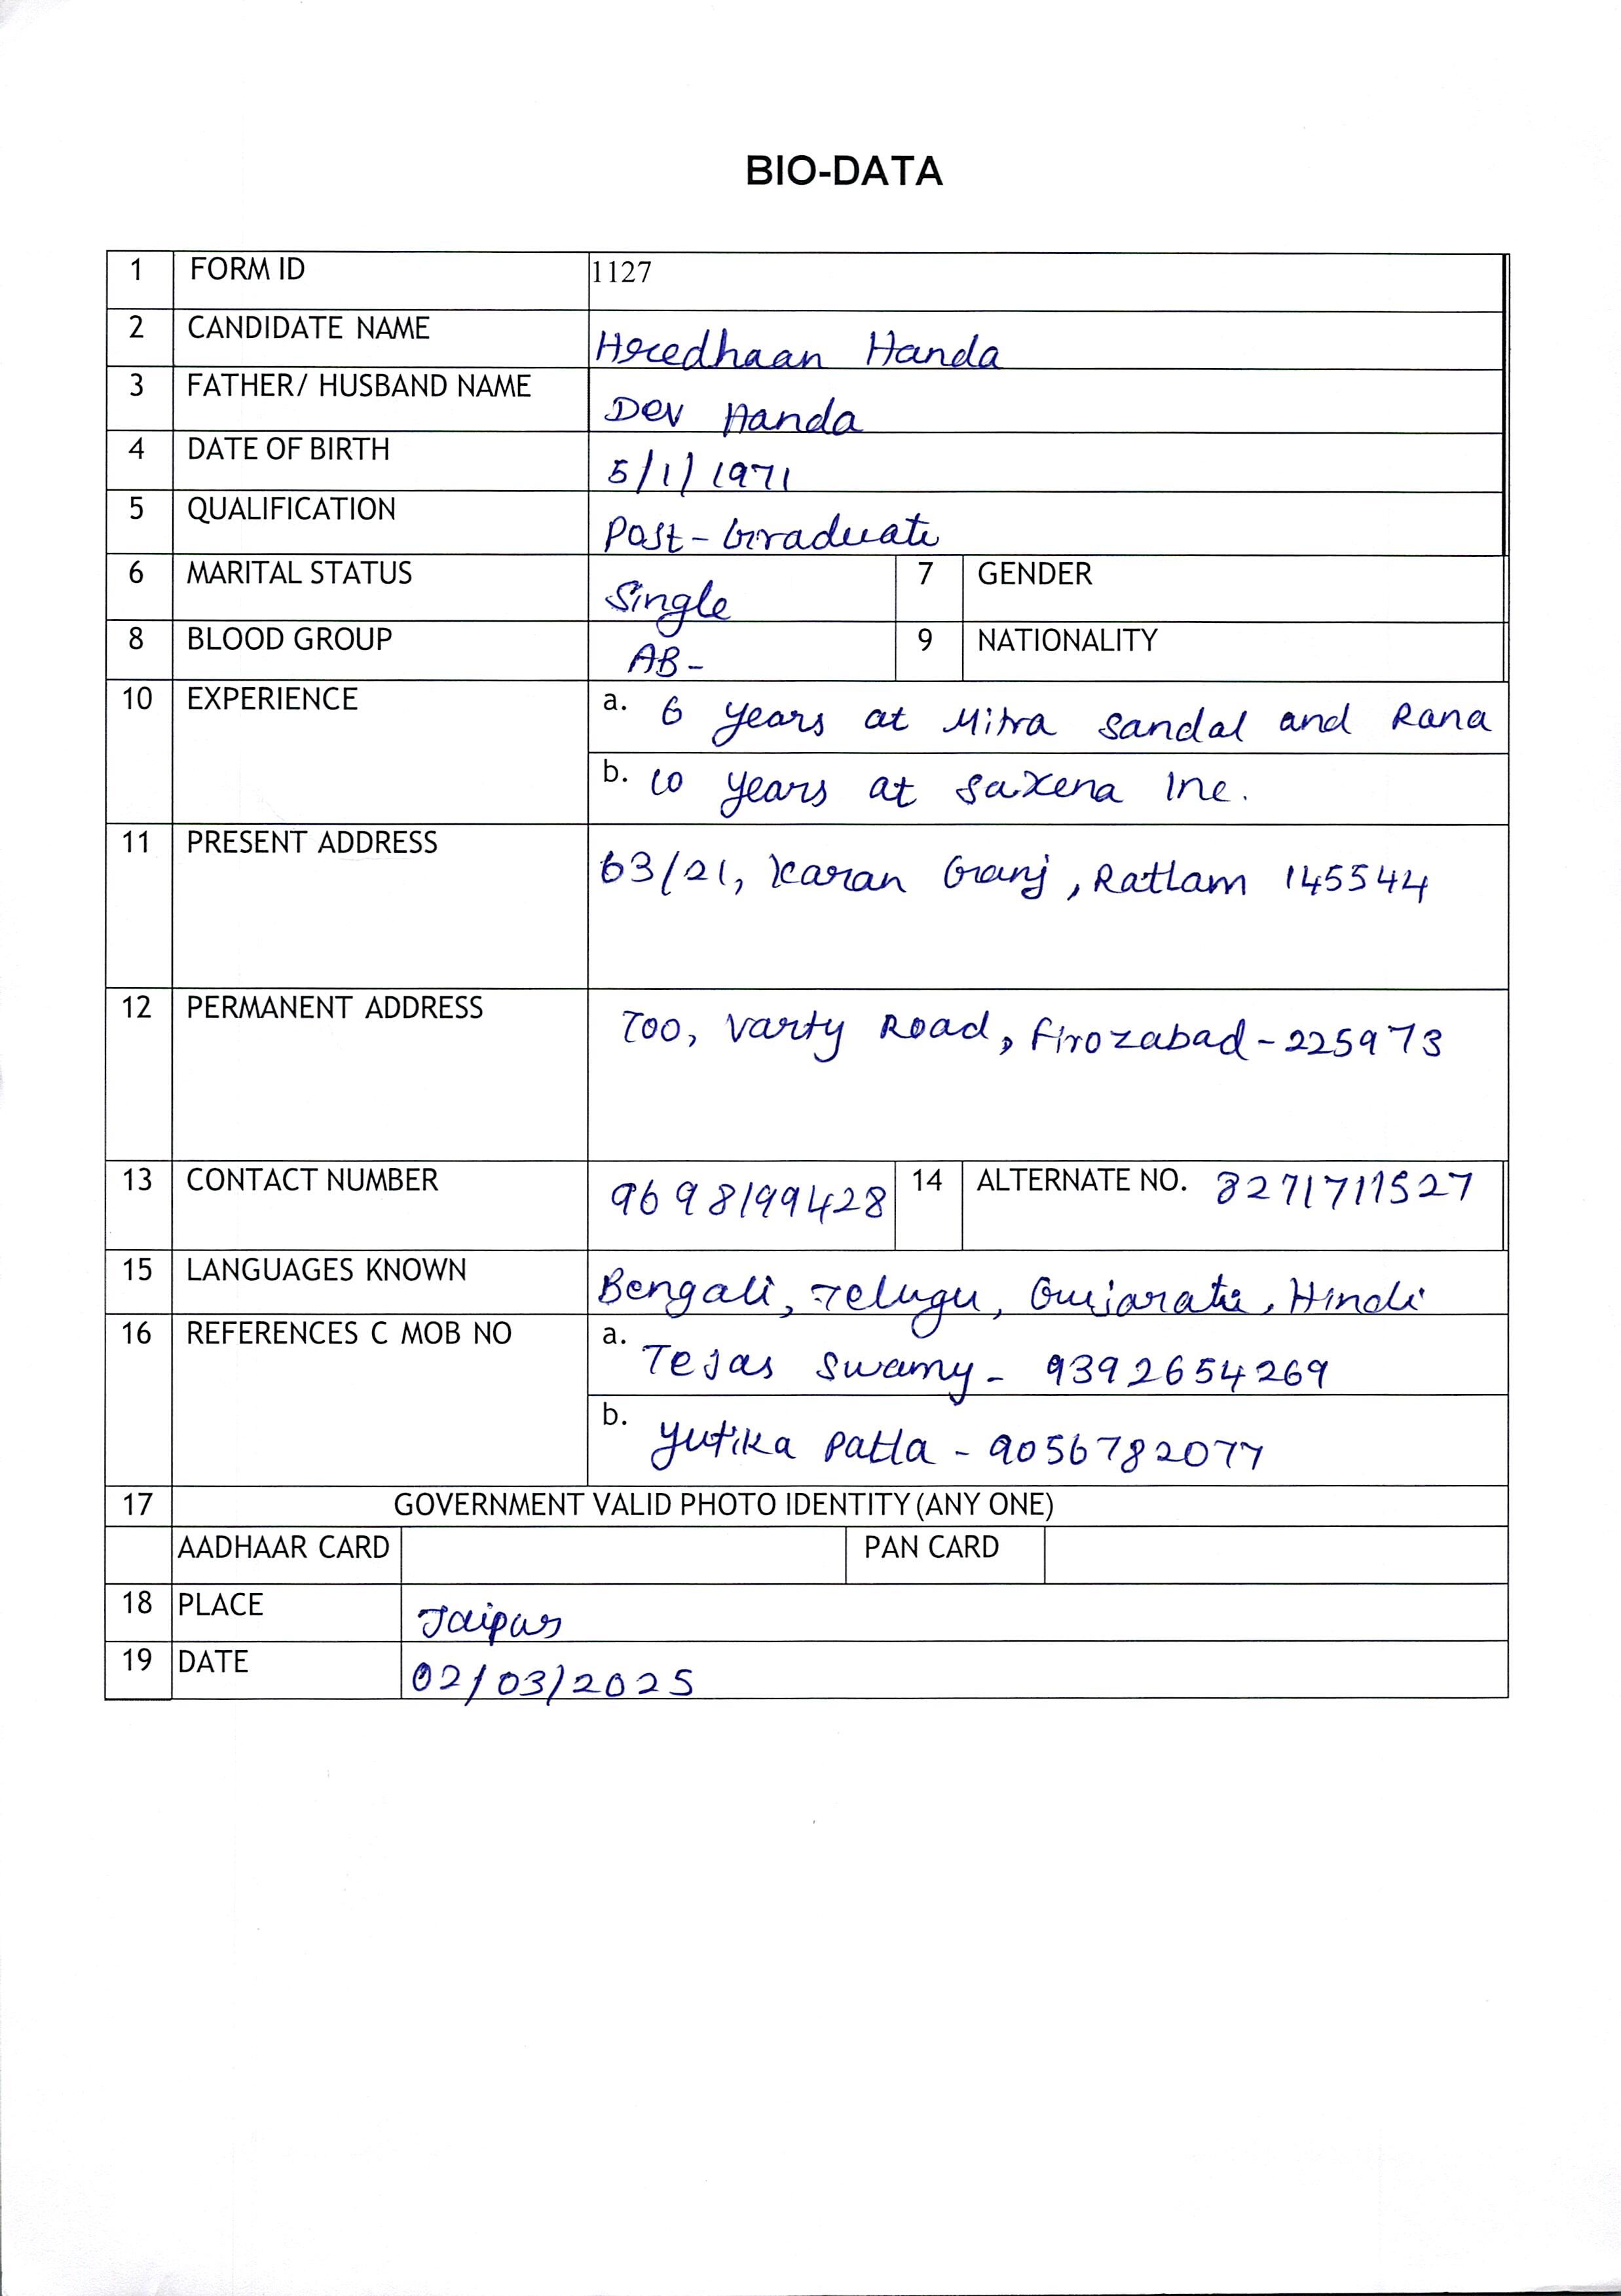 BIO-DATA
1 FORM ID 1127
2 CANDIDATE NAME Hredhaan Handa
3 FATHER/ HUSBAND NAME Dev Handa
4 DATE OF BIRTH 5/1/1971
5 QUALIFICATION Post-Graduate
6 MARITAL STATUS Single 7 GENDER
8 BLOOD GROUP AB- 9 NATIONALITY
10 EXPERIENCE a. 6 years at Mitra Sandal and Rana
b. 10 years at Saxena Inc.
11 PRESENT ADDRESS 63/21, Karan Ganj, Ratlam 145544
12 PERMANENT ADDRESS 700, Varty Road, Firozabad-225973
13 CONTACT NUMBER 9698199428 14 ALTERNATE NO. 8271711527
15 LANGUAGES KNOWN Bengali, Telugu, Gujarati, Hindi
16 REFERENCES C MOB NO a. Tejas Swamy - 9392654269
b. Yutika Patla - 9056782077
17 GOVERNMENT VALID PHOTO IDENTITY (ANY ONE)
AADHAAR CARD PAN CARD
18 PLACE Jaipur
19 DATE 02/03/2025